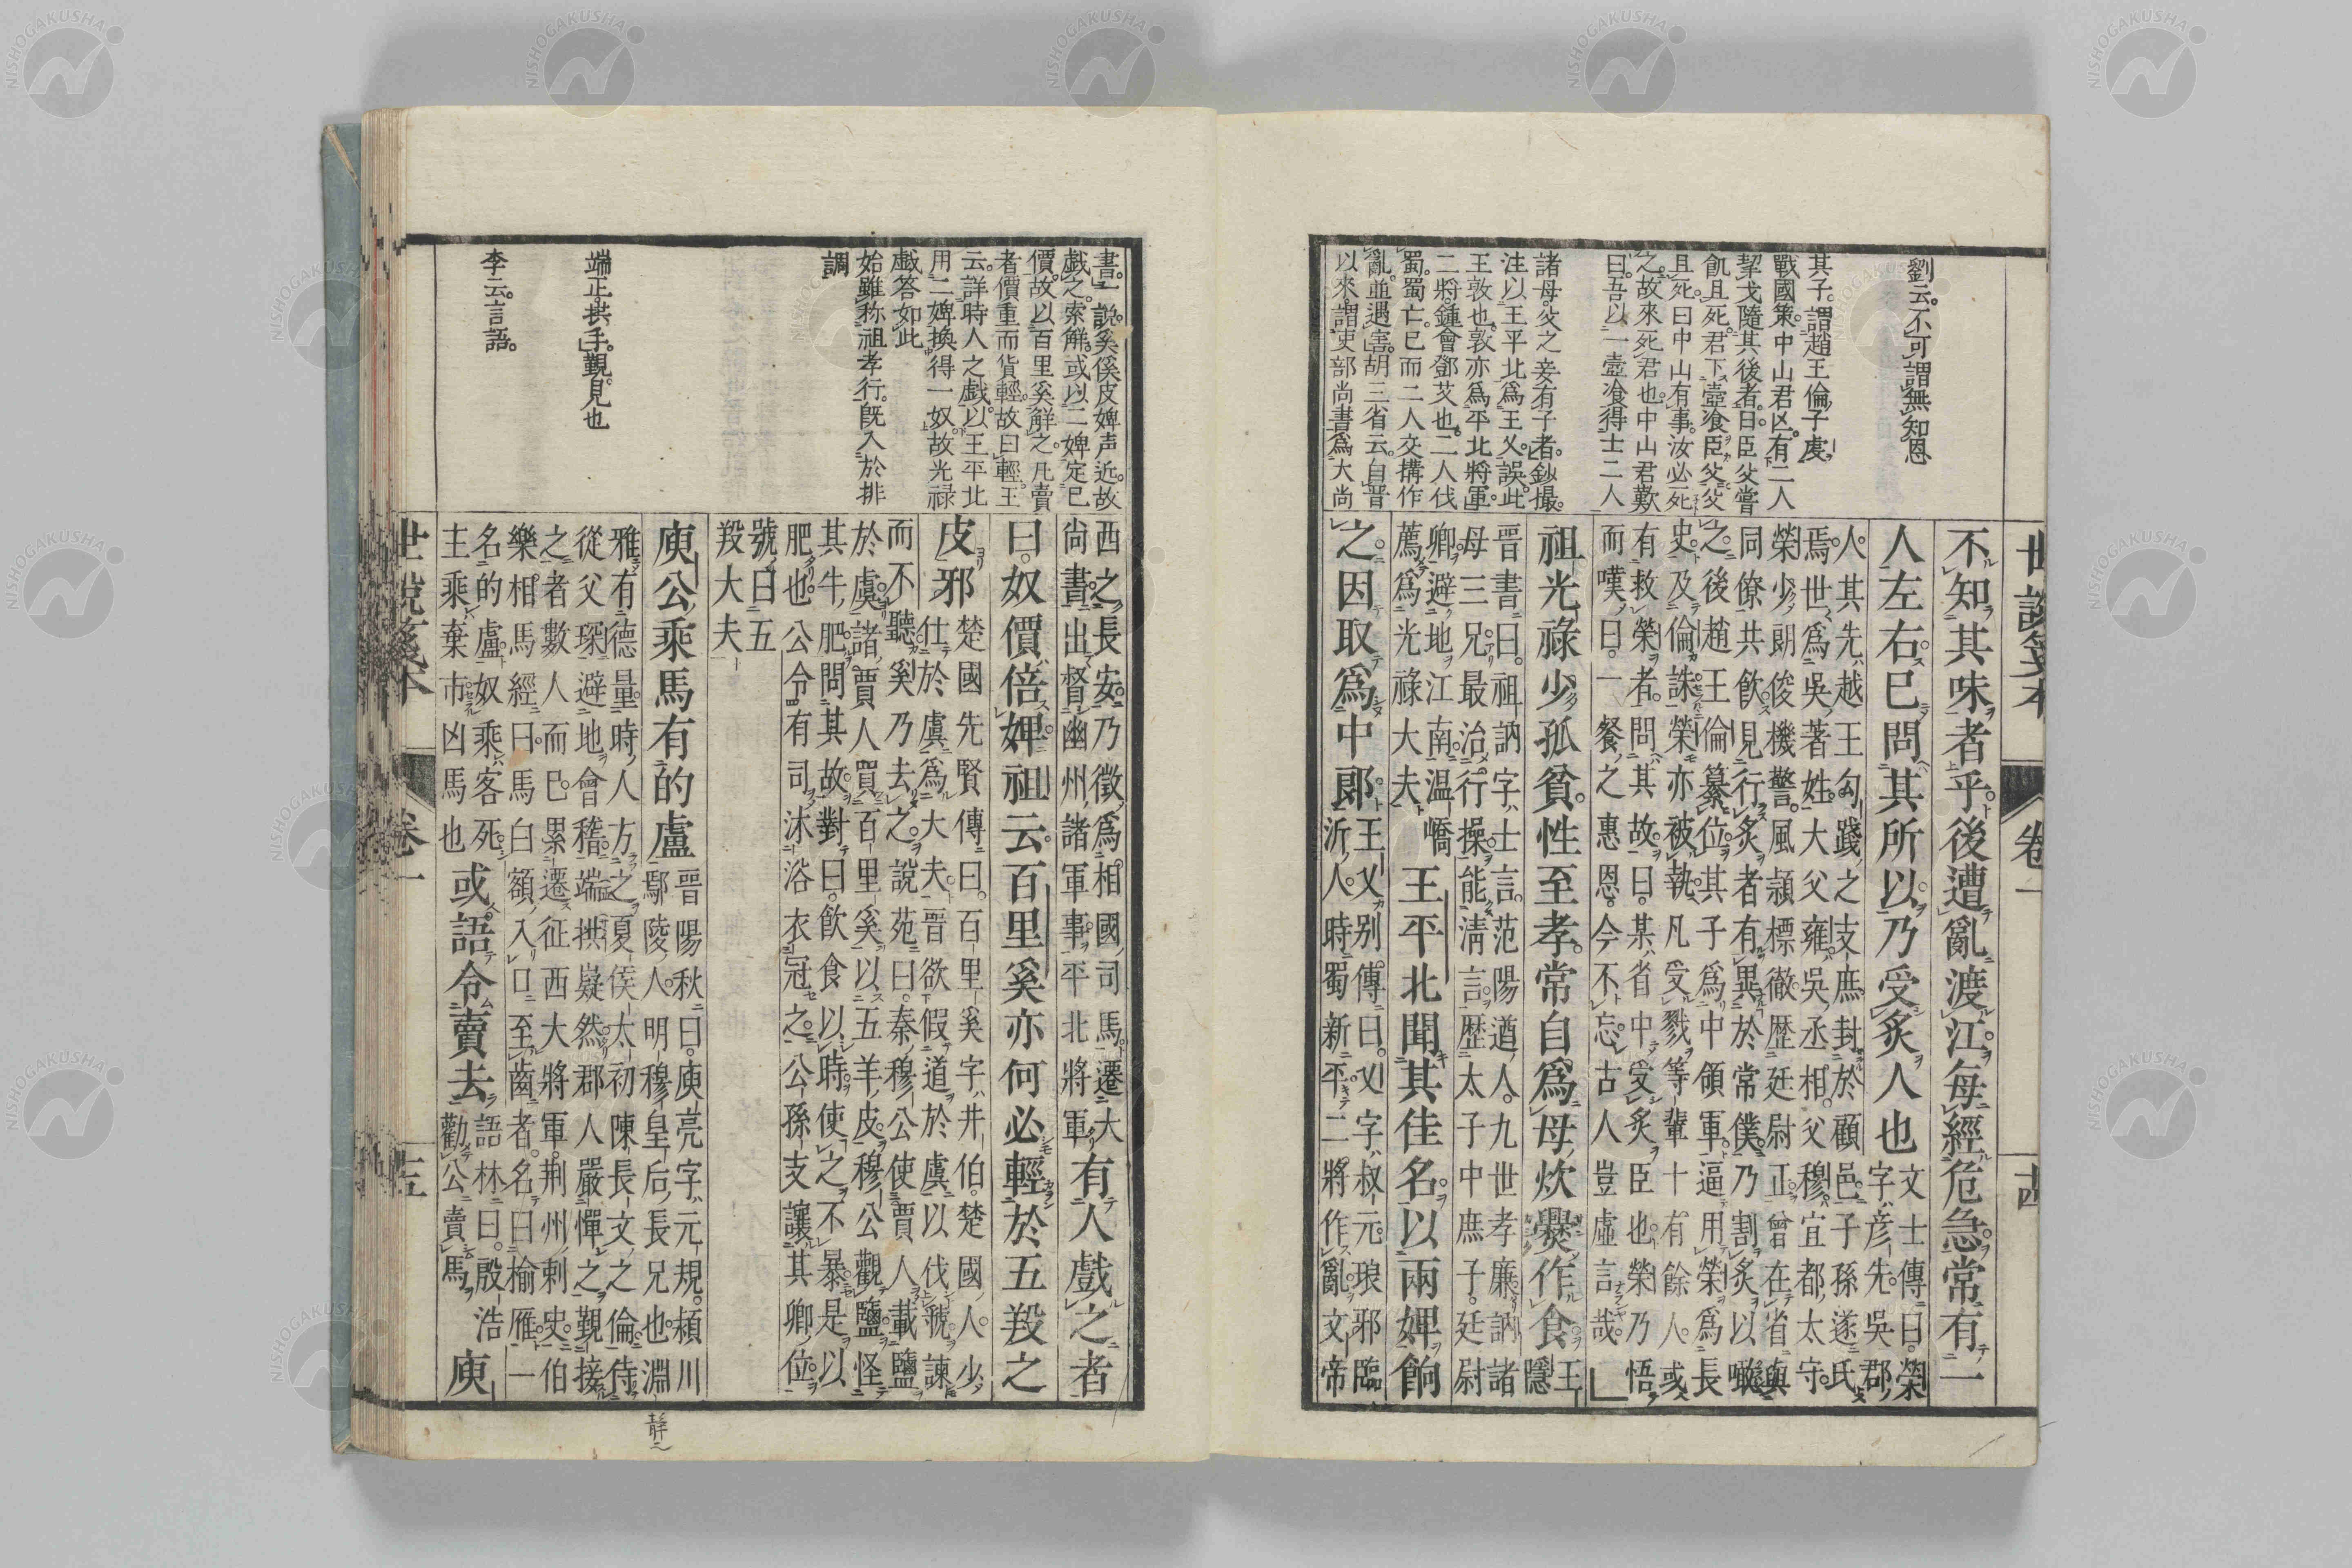 世說箋本　卷一　十四
劉云。不可謂無知恩
其子。謂趙王倫子虔
戰國策。中山君凶。有二人
挈戈隨其後者。曰。臣父嘗
飢且死。君下壺飡臣父。父
且死。曰中山有事。汝必死
之。故來死君也。中山君歎
曰。吾以一壺飡得士二人
諸母。父之妾有子者。鈔撮。
注以王平北為王乂。誤。此
王敦也。敦亦為平北將軍。
二將。鍾會鄧艾也。二人伐
蜀。蜀亡。已而二人交搆作
亂。並遇害。胡三省云。自晉
以來。謂吏部尚書為大尚
不知其味者乎。後遭亂渡江。每經危急。常有一
人左右已。問其所以。乃受炙人也
文士傳曰。榮
字彦先。吳郡
人。其先越王勾踐之支庶。封於顧邑。子孫遂氏
焉。世為吳著姓。大父雍。吳丞相。父穆。宜都太守。
榮少朗俊機警。風頴標徹。歴廷尉正。曾在省與
同僚共飲。見行炙者有異於常僕。乃割炙以噉
之。後趙王倫簒位。其子為中領軍。逼用榮為長
史。及倫誅。榮亦被執。凡受戮等輩十有餘人。或
有救榮者。問其故。曰。某省中受炙臣也。榮乃悟
而嘆曰。一餐之惠恩。今不忘。古人豈虛言哉。
祖光祿少孤貧。性至孝。常自為母炊爨作食。
王
隱
晉書曰。祖訥字士言。范陽遒人。九世孝廉。訥諸
母三兄。最治行操。能清言。歴太子中庶子。廷尉
卿。避地江南。温嶠
薦為光祿大夫
王平北聞其佳名。以兩婢餉
之。因取為中郎。
王乂別傳曰。乂字叔元。琅邪臨
沂人。時蜀新平。二將作亂。文帝
書。一說。奚傒皮婢声近。故
戲之。索解。或以二婢定已
價。故以百里奚解之。凡賣
者價重而貨輕。故曰輕。王
云。詳時人之戲。以王平北
用二婢換得一奴。故光禄
戲答如此
始雖称祖孝行。既入於排
調
端正。拱手。覲見也
李云。言語。
西之長安。乃徵為相國司馬。遷大
尚書。出督幽州諸軍事。平北將軍
有人戲之者
曰。奴價倍婢。祖云。百里奚亦何必輕於五羖之
皮邪
楚國先賢傳曰。百里奚字井伯。楚國人。少
仕於虞為大夫。晋欲假道於虞以伐虢。諫
而不聽。奚乃去之。說苑曰。秦穆公使賈人載鹽
於虞。諸賈人買百里奚以五羊皮。穆公觀鹽。怪
其牛肥。問其故。對曰。飲食以時。使之不暴。是以
肥也。公令有司沐浴衣冠之。公孫支讓其卿位。
號曰五
羖大夫
庾公乘馬有的盧
晋陽秋曰。庾亮字元規。潁川
鄢陵人。明穆皇后長兄也。淵
雅有德量。時人方之夏侯太初陳長文之倫。侍
從父琛避地會稽。端拱嶷然。郡人嚴憚之。覲接
之者數人而已。累遷征西大將軍。荆州刺史。伯
樂相馬經曰。馬白額入口至齒者。名曰榆雁。一
名的盧。奴乘客死。
主乘棄市。凶馬也
或語令賣去
語林曰。殷浩
勸公賣馬。
庾
靜
世說箋本　卷一　十五